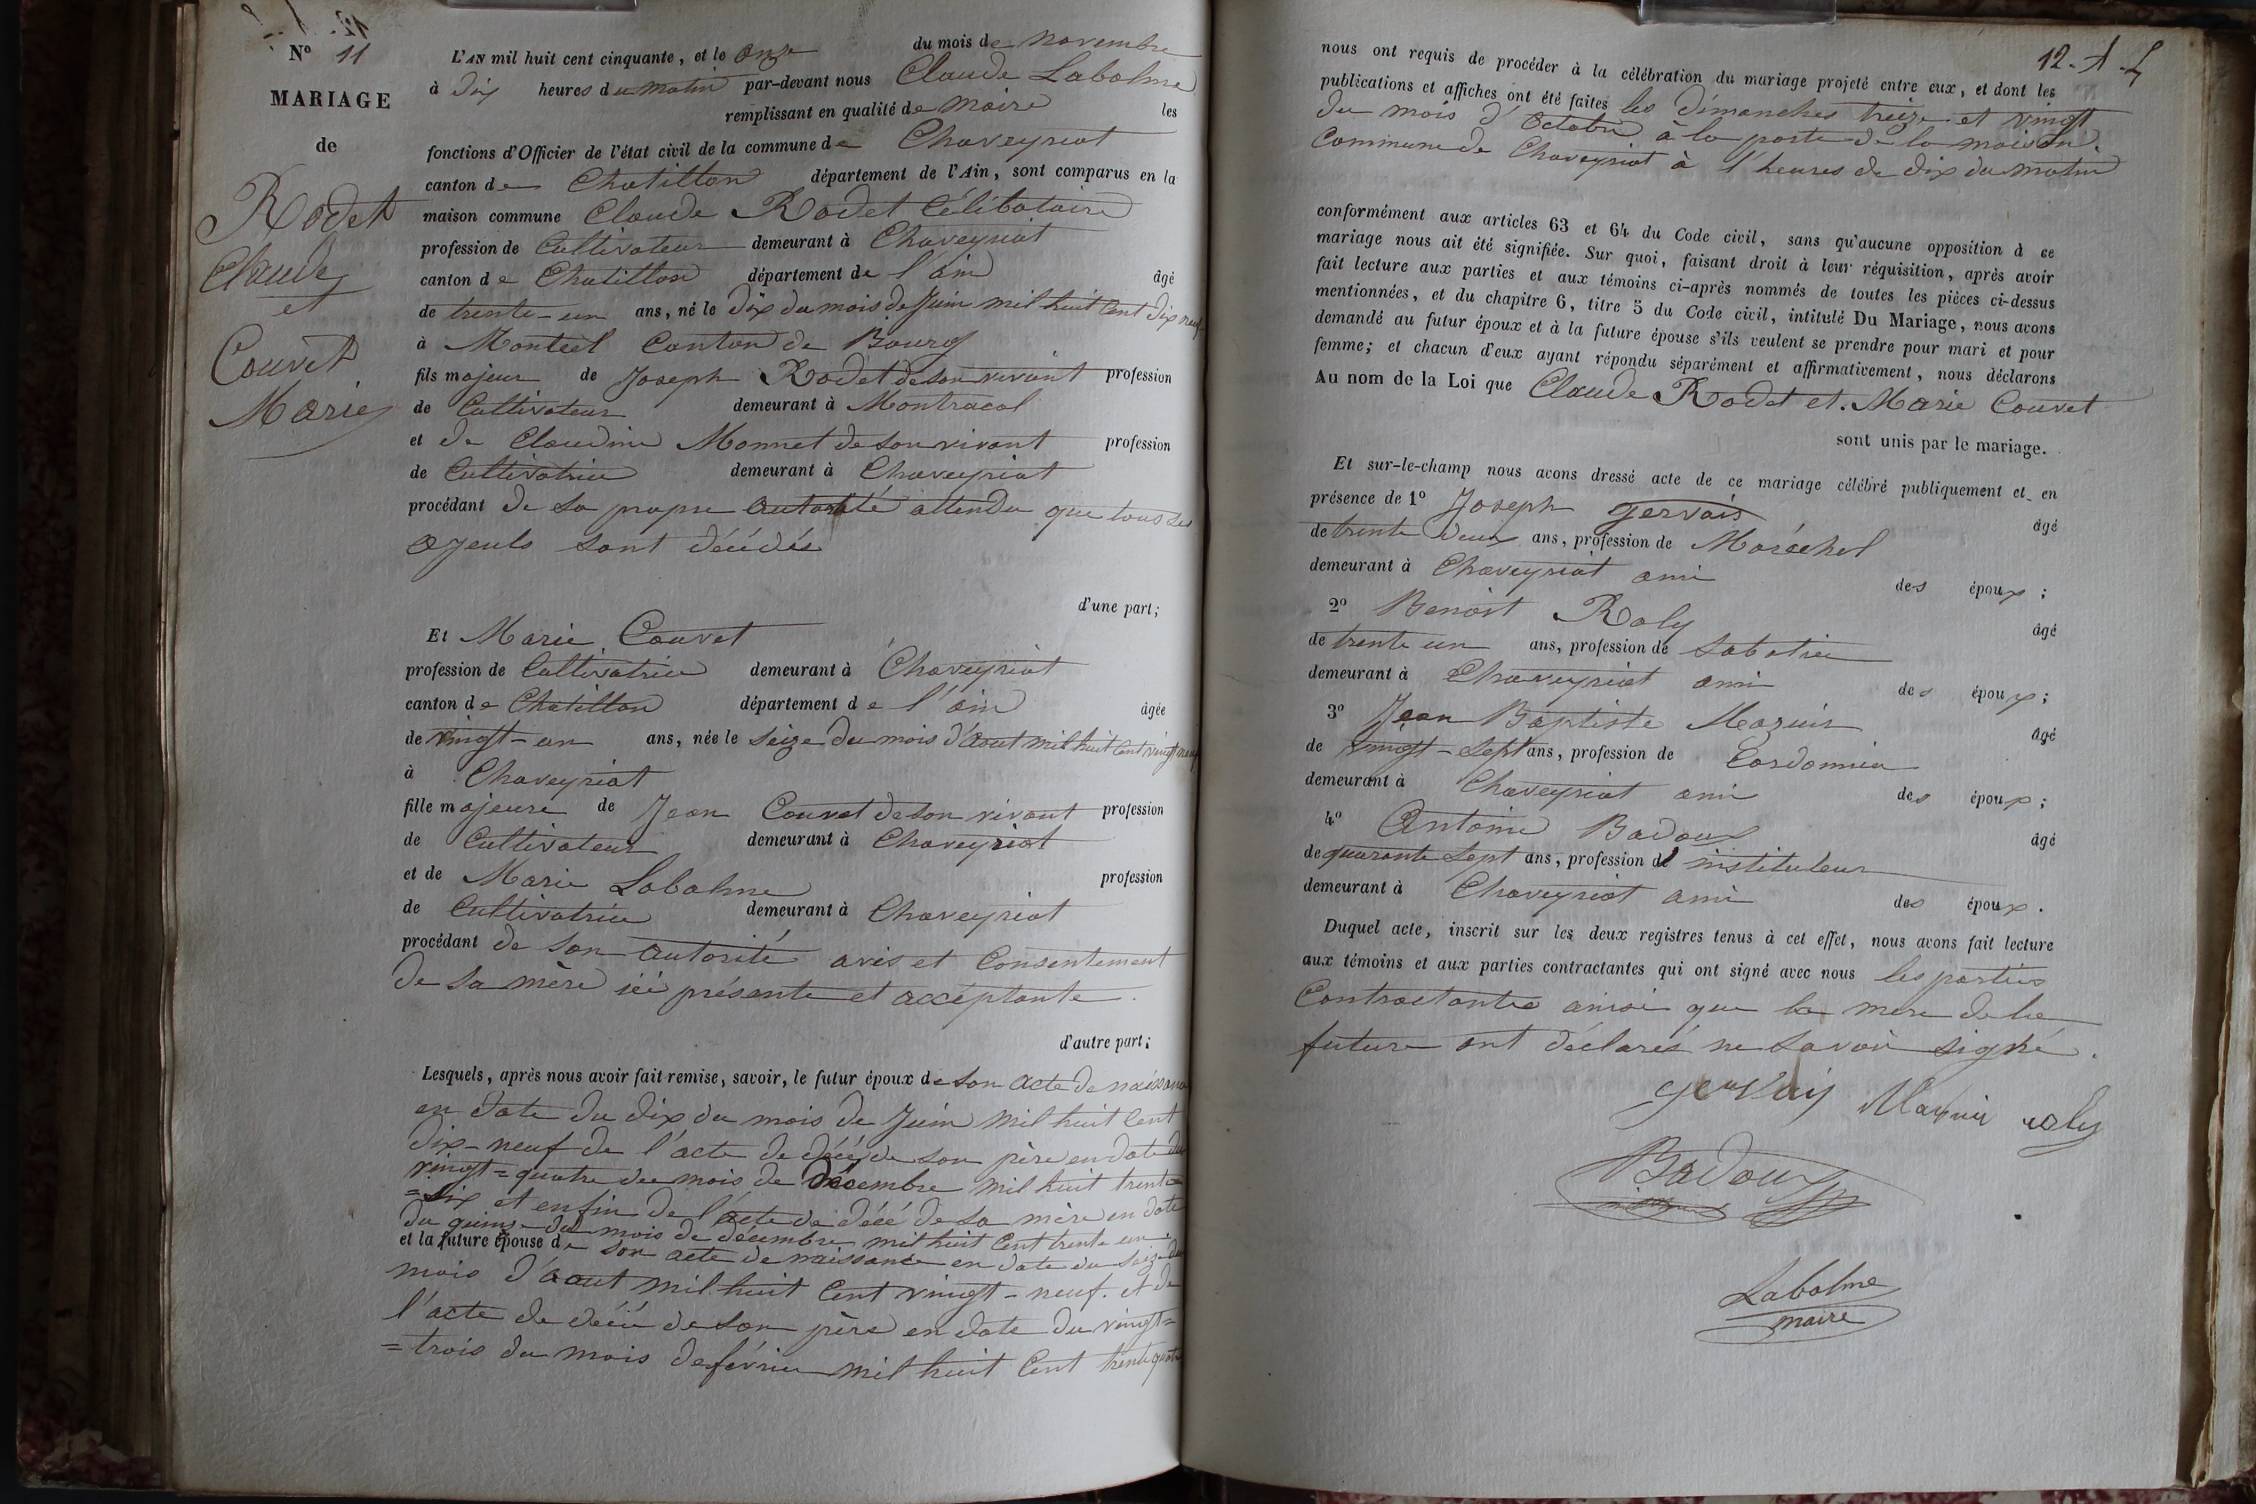 Nº 11
MARIAGE
de
Rodet
Claude
et
Couvet
Marie
L'AN mil huit cent cinquante, et le onze du mois de novembre
à dix heures du matin par-devant nous Claude Labalme
remplissant en qualité de maire les
fonctions d'Officier de l'état civil de la commune de Chaveyriat
canton de Chatillon département de l'Ain, sont comparus en la
maison commune Claude Rodet Célibataire
profession de Cultivateur demeurant à Chaveyriat
canton de Chatillon département de l'ain âgé
de trente-un ans, né le dix du mois de Juin mil huit Cent dix neuf
à Montcel Canton de Bourg
fils majeur de Joseph Rodet de son vivant profession
de Cultivateur demeurant à Montracol
et de Claudine Monnet de son vivant profession
de Cultivatrice demeurant à Chaveyriat
procédant de sa propre autorité attendu que tous ses
ayeuls sont décédés
d'une part;
Et Marie Couvet
profession de Cultivatrice demeurant à Chaveyriat
canton de Chatillon département de l'ain âgée
de vingt-un ans, née le seize du mois d'aout mil huit Cent vingt neuf
à Chaveyriat
fille majeure de Jean Couvet de son vivant profession
de Cultivateur demeurant à Chaveyriat
et de Marie Labalme profession
de Cultivatrice demeurant à Chaveyriat
procédant de son autorité avis et Consentement
de sa mère ici présente et acceptante.
d'autre part;
Lesquels, après nous avoir fait remise, savoir, le futur époux de son acte de naissance
en date du dix du mois de Juin mil huit Cent
dix-neuf de l'acte de décé de son père en date du
vingt=quatre du mois de Décembre mil huit trente=
=six et enfin de l'acte de décé de sa mère en date
du quinze du mois de décembre mil huit Cent trente un
et la future épouse de son acte de naissance en date du seize du
mois d'aout mil huit Cent vingt-neuf. et de
l'acte de décé de son père en date du vingt=
=trois du mois de février mil huit Cent trente quatre
12.
nous ont requis de procéder à la célébration du mariage projeté entre eux, et dont les
publications et affiches ont été faites les dimanches treize et vingt
du mois d'Octobre à la porte de la maison
Commune de Chaveyriat à l'heures de dix du matin
conformément aux articles 63 et 64 du Code civil, sans qu'aucune opposition à ce
mariage nous ait été signifiée. Sur quoi, faisant droit à leur réquisition, après avoir
fait lecture aux parties et aux témoins ci-après nommés de toutes les pièces ci-dessus
mentionnées, et du chapitre 6, titre 5 du Code civil, intitulé Du Mariage, nous avons
demandé au futur époux et à la future épouse s'ils veulent se prendre pour mari et pour
femme; et chacun d'eux ayant répondu séparément et affirmativement, nous déclarons
Au nom de la Loi que Claude Rodet et. Marie Couvet
sont unis par le mariage.
Et sur-le-champ nous avons dressé acte de ce mariage célébré publiquement et en
présence de 1º Joseph gervais âgé
de trente deux ans, profession de Maréchal
demeurant à Chaveyriat ami des époux;
2º Benoit Roly âgé
de trente un ans, profession de Sabotier
demeurant à Chaveyriat ami des époux;
3º Jean Baptiste Mazuir âgé
de vingt-sept ans, profession de Cordonnier
demeurant à Chaveyriat ami des époux;
4º Antoine Badoux âgé
de quarante sept ans, profession d'instituteur
demeurant à Chaveyriat ami des époux.
Duquel acte, inscrit sur les deux registres tenus à cet effet, nous avons fait lecture
aux témoins et aux parties contractantes qui ont signé avec nous les parties
Contractantes ainsi que la mere de la
future ont déclarés ne savoir signé.
gervais Mazuir roly
Badoux
Labalme
maire